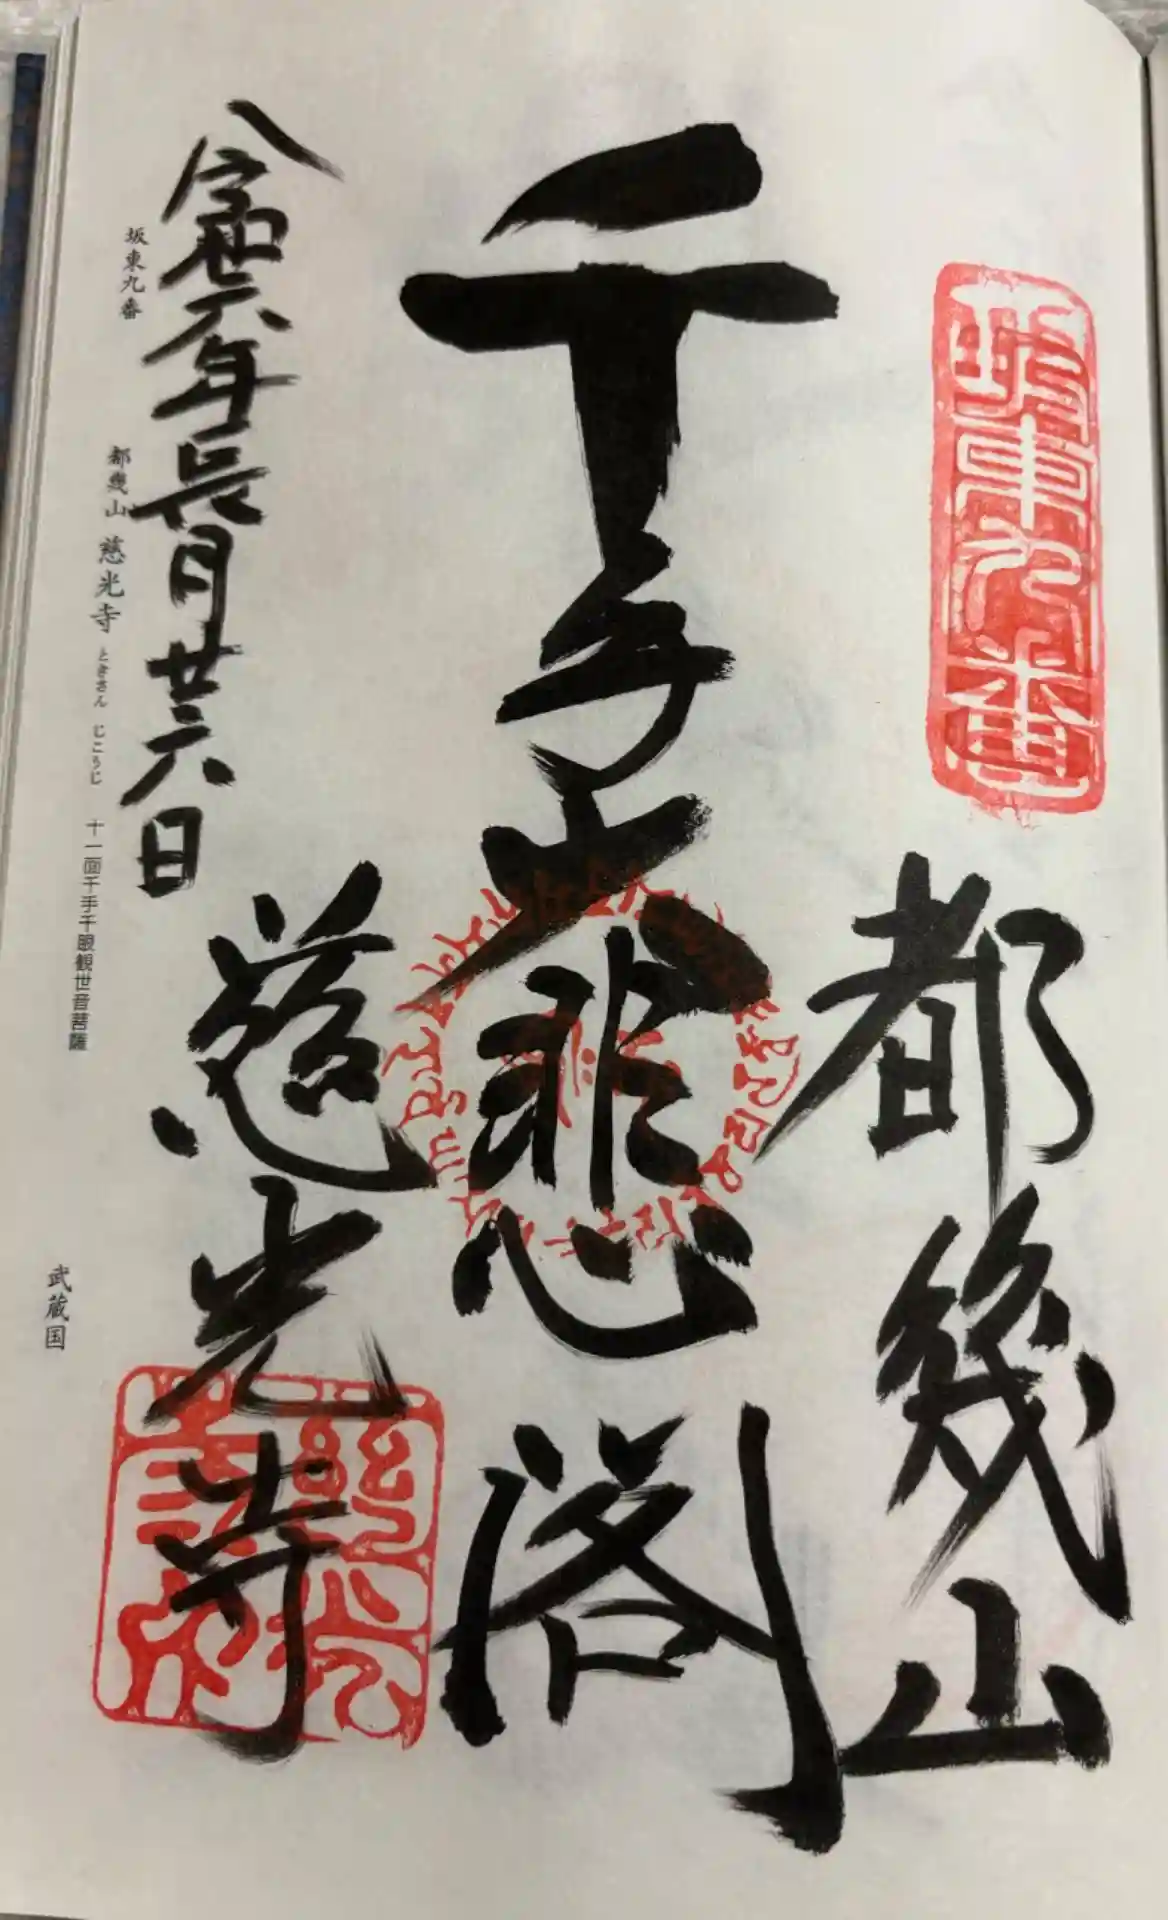 坂東九番
都幾山
千手大悲閣
慈光寺
令和六年長月廿六日
坂東九番
都幾山 慈光寺 ときさん じこうじ 十一面千手千眼観世音菩薩
武蔵国
慈光寺印